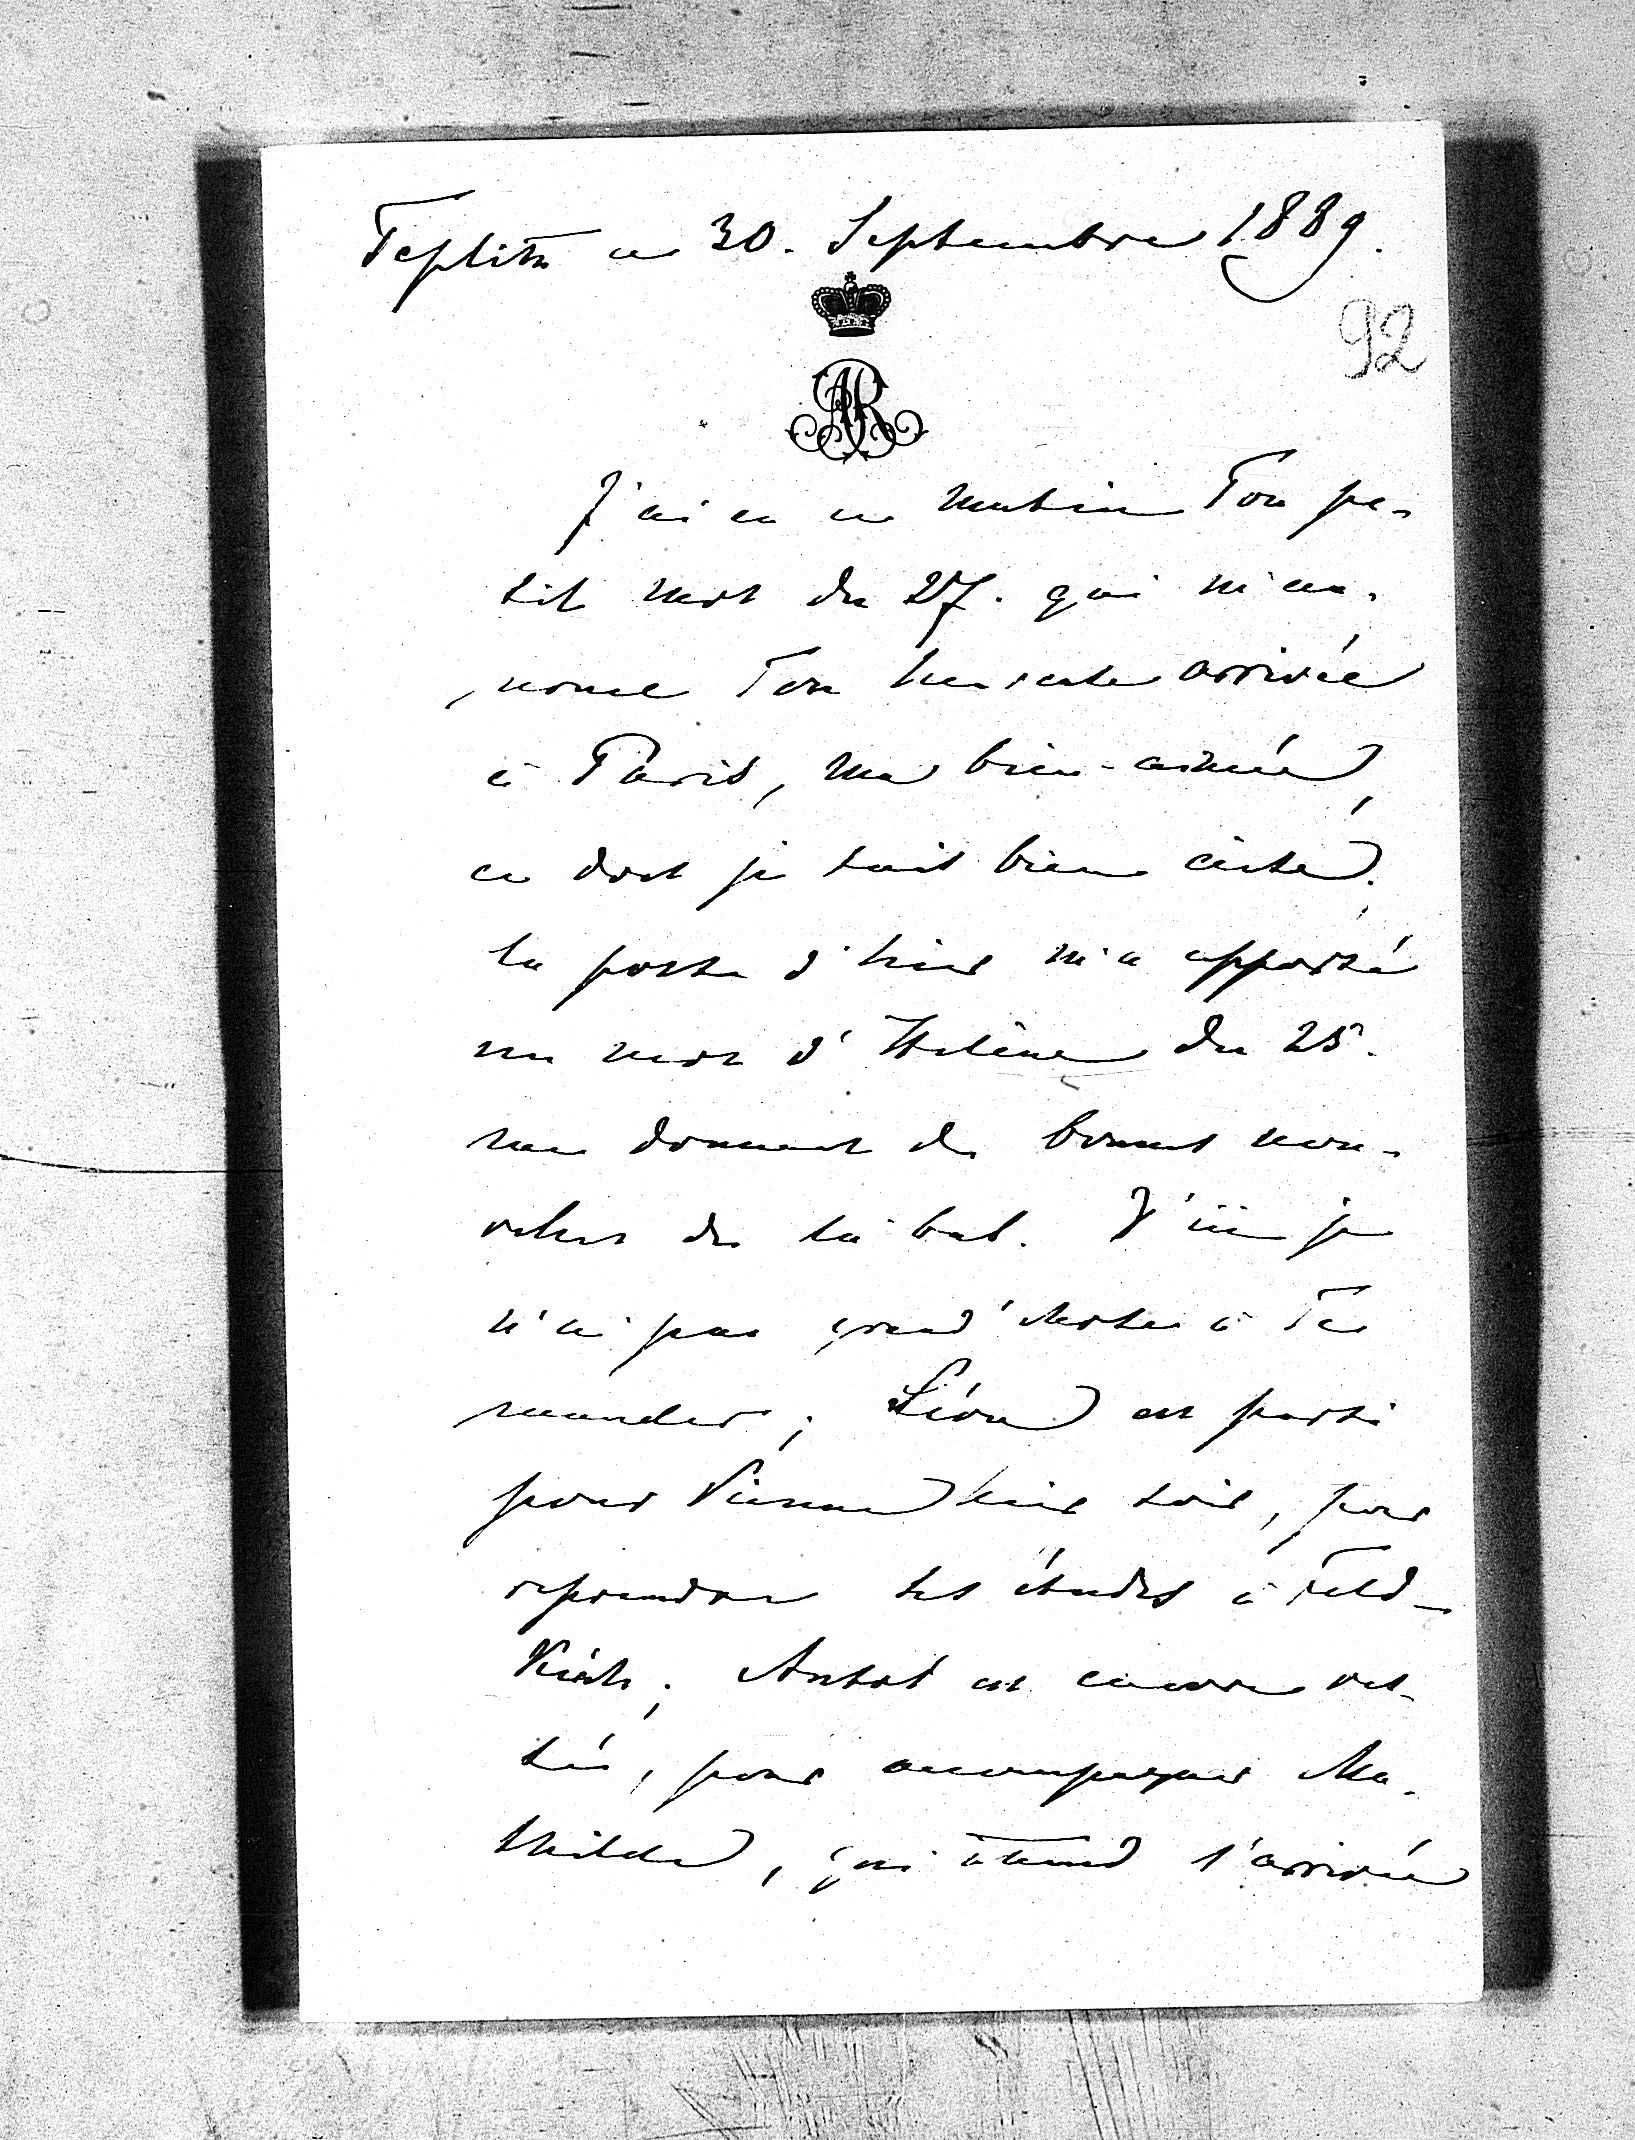 Teplitz ce 30. Septembre 1889.
92
J'ai eu ce matin Ton pe-
tit mot du 27. qui m'an-
nonce Ton heureuse arrivée
à Paris, ma bien-aimée,
ce dont je suis bien aise.
La poste d'hier m'a apporté
un mot d'Hélène du 25.
me donnant de bonnes nou-
velles de là bas. D'ici je
n'ai pas grand'chose à Te
mander; Léon est parti
pour Vienne hier soir, pour
reprendre ses études à Feld-
kirch; est encore res-
té, pour accompagner Ma-
thilde, qui attend l'arrivée